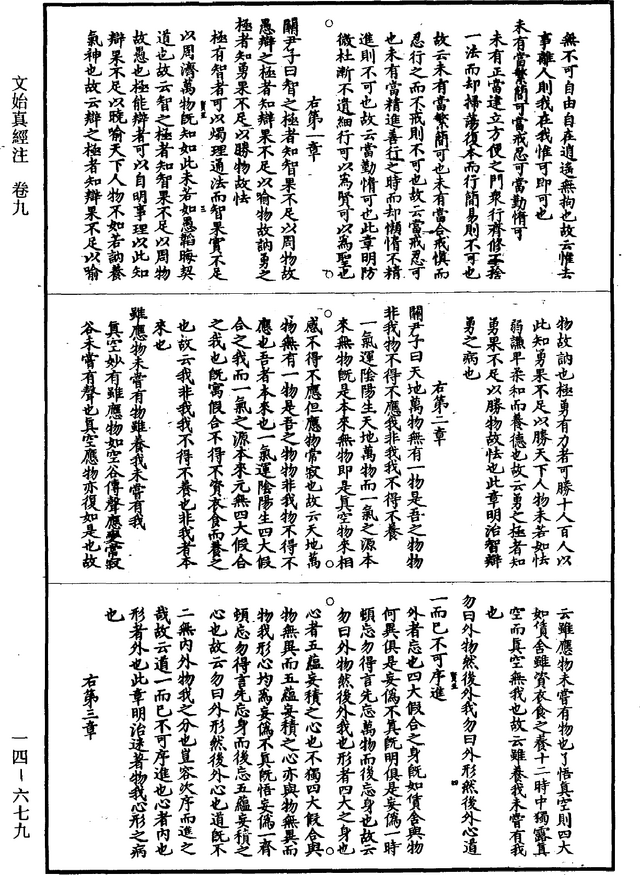 文始真經注　卷九
一四—六七九
無不可自由自在逍遙無拘也故云惟去
事離人則我在我惟可即可也
未有當繁簡可當戒忍可當勤惰可
未有正當建立方便之門衆行齊修不捨
一法而却掃蕩復本而行簡易則不可也
故云未有當繁簡可也未有當合戒慎而
忍行之而不戒則不可也故云當戒忍可
也未有當精進善行之時而却懶惰不精
進則不可也故云當勤惰可也此章明防
微杜漸不遺細行可以爲賢可以爲聖也
右第一章
關尹子曰智之極者知智果不足以周物故
愚辯之極者知辯果不足以喻物故訥勇之
極者知勇果不足以勝物故怯
極有智者可以燭理通法而智果實不足
以周濟萬物既知如此未若如愚韜晦契
道也故云智之極者知智果不足以周物
故愚也極能辯者可以自明事理以此知
辯果不足以曉喻天下人物不如若訥養
氣神也故云辯之極者知辯果不足以喻
物故訥也極勇有力者可勝十人百人以
此知勇果不足以勝天下人物未若如怯
弱謙卑柔和而養德也故云勇之極者知
勇果不足以勝物故怯也此章明治智辯
勇之病也
右第二章
關尹子曰天地萬物無有一物是吾之物物
非我物不得不應我非我我不得不養
一氣運陰陽生天地萬物而一氣之源本
來無物既是本來無物即是真空物來相
感不得不應但應物常寂也故云天地萬
物無有一物是吾之物物非我物不得不
應也吾者本來也一氣運陰陽生四大假
合之我而一氣之源本來元無四大假合
之我也既寓假合不得不資衣食而養之
也故云我非我我不得不養也非我者本
來也
雖應物未嘗有物雖養我未嘗有我
真空妙有雖應物如空谷傳聲應變常寂
谷未嘗有聲也真空應物亦復如是也故
云雖應物未嘗有物也了悟真空則四大
如賃舍雖資衣食之養十二時中獨露真
空而真空無我也故云雖養我未嘗有我
也
勿曰外物然後外我勿曰外形然後外心道
一而已不可序進
外者忘也四大假合之身既如賃舍與物
何異俱是妄僞不真既明俱是妄僞一時
頓忘勿得言先忘萬物而後忘身也故云
勿曰外物然後外我也形者四大之身也
心者五蘊妄積之心也不獨四大假合與
物無異而五蘊妄積之心亦與物無異而
物我形心均爲妄僞不真既悟妄僞一齊
頓忘勿得言先忘身而後忘五蘊妄積之
心也故云勿曰外形然後外心也道既不
二無內外物我之分也豈容次序而進之
哉故云道一而已不可序進也心者內也
形者外也此章明治迷著物我心形之病
也
右第三章